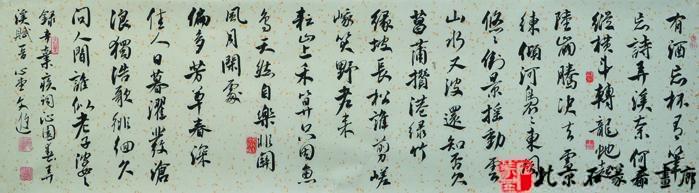 有酒忘杯有筆
忘詩弄溪奈何看
縱橫斗轉龍蛇起
陸崩騰決去雪
練傾河裊裊東風
悠悠倒景搖動雲
山水又波還知否欠
菖蒲攢港綠竹
緣坡長松誰剪嵯
峨笑野老來
耘山上禾算只因魚
鳥天然自樂非關
風月閑處
偏多芳草春深
佳人日暮濯髮滄
浪獨浩歌徘徊久
問人間誰似老子婆娑
錄辛棄疾詞沁園春弄
溪賦
北京